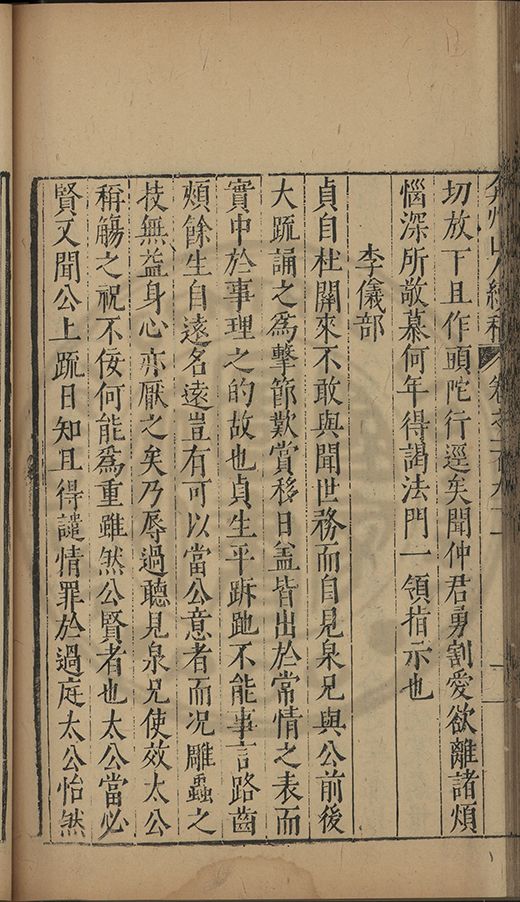 弇州山人續稿 卷之一百九十一
切放下且作頭陀行逕矣聞仲君勇割愛欲離諸煩
惱深所敬慕何年得謁法門一領指示也
李儀部
貞自杜關來不敢與聞世務而自見泉兄與公前後
大疏誦之爲擊節歎賞移日盖皆出於常情之表而
實中於事理之的故也貞生平跅跎不能事言路齒
頰餘生自遠名遠豈有可以當公意者而况雕蟲之
技無益身心亦厭之矣乃辱過聽見泉兄使效太公
稱觴之祝不佞何能爲重雖然公賢者也太公當必
賢又聞公上疏日知且得譴情罪於過庭太公怡然